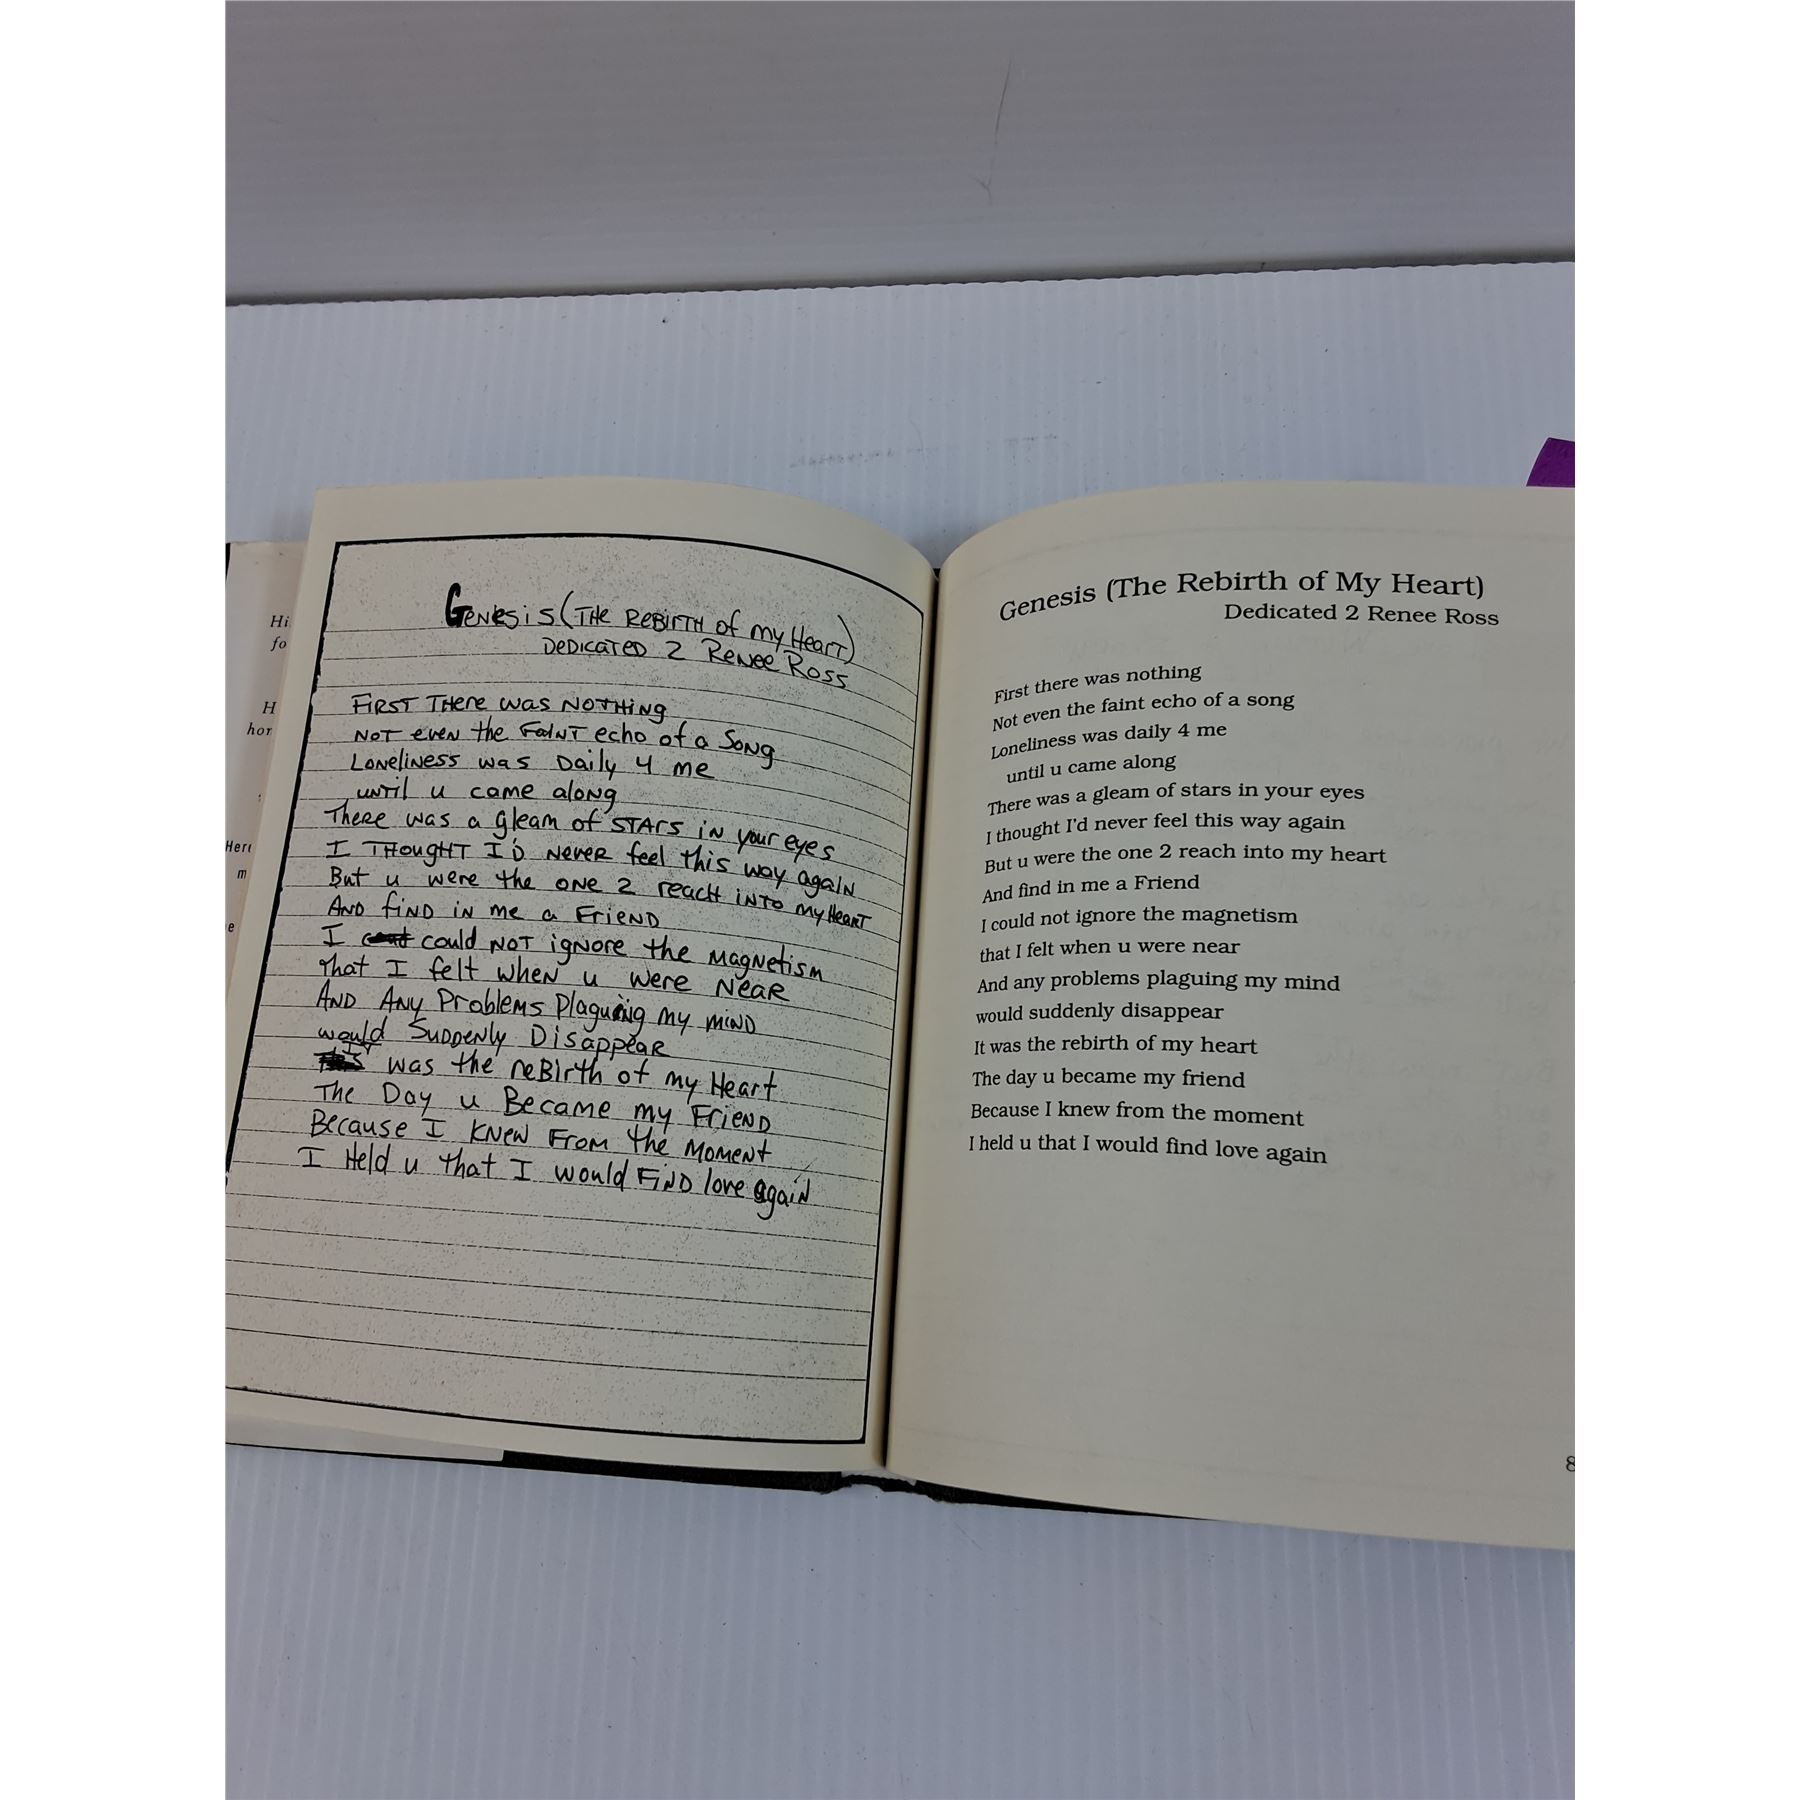 Hi
fo
H
hor
Her
m
e
Genesis (THE REBIRTH of my Heart)
DEDICATED 2 Renee Ross
FIRST THere was NOTHing
NOT even the FaiNT echo of a Song
Loneliness was Daily 4 me
until u came along
There was a gleam of STARS in your eyes
I THOUGHT I'D Never feel this way again
But u were the one 2 reach into my Heart
AND find in me a Friend
I could NOT ignore the magnetism
that I felt when u were Near
AND Any Problems Plaguing my mind
would Suddenly Disappear
IT was the reBirth of my Heart
The Day u Became my Friend
Because I Knew From the Moment
I Held u that I would Find love again
Genesis (The Rebirth of My Heart)
Dedicated 2 Renee Ross
First there was nothing
Not even the faint echo of a song
Loneliness was daily 4 me
until u came along
There was a gleam of stars in your eyes
I thought I'd never feel this way again
But u were the one 2 reach into my heart
And find in me a Friend
I could not ignore the magnetism
that I felt when u were near
And any problems plaguing my mind
would suddenly disappear
It was the rebirth of my heart
The day u became my friend
Because I knew from the moment
I held u that I would find love again
8